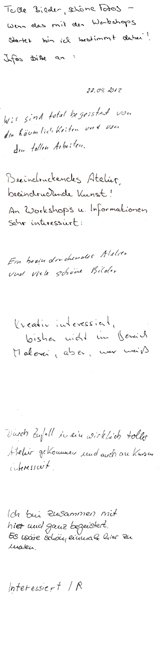 Tolle Bilder, schöne Fotos –
wenn das mit den Workshops
startet bin ich bestimmt dabei!
Infos bitte an :
22.09.2017
Wir sind total begeistert von
den Räumlichkeiten und von
den tollen Arbeiten.
Beeindruckendes Atelier,
beeindruckende Kunst!
An Workshops u. Informationen
sehr interessiert:
Ein beeindruckendes Atelier
und viele schöne Bilder
Kreativ interessiert,
bisher nicht im Bereich
Malerei, aber, wer weiß
Durch Zufall in ein wirklich tolles
Atelier gekommen und auch an Kursen
interessiert
Ich bin zusammen mit
hier und ganz begeistert.
Es wäre schön einmal hier zu
malen.
Interessiert / R